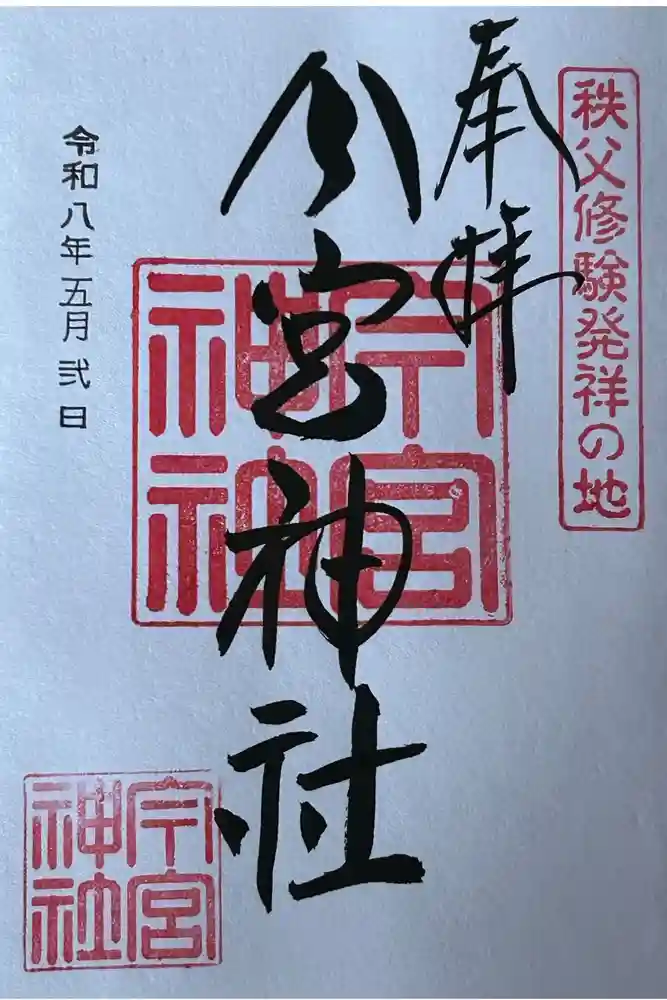 秩父修験発祥の地
奉拝
今宮神社
令和八年五月弐日
今宮
神社
今宮
神社